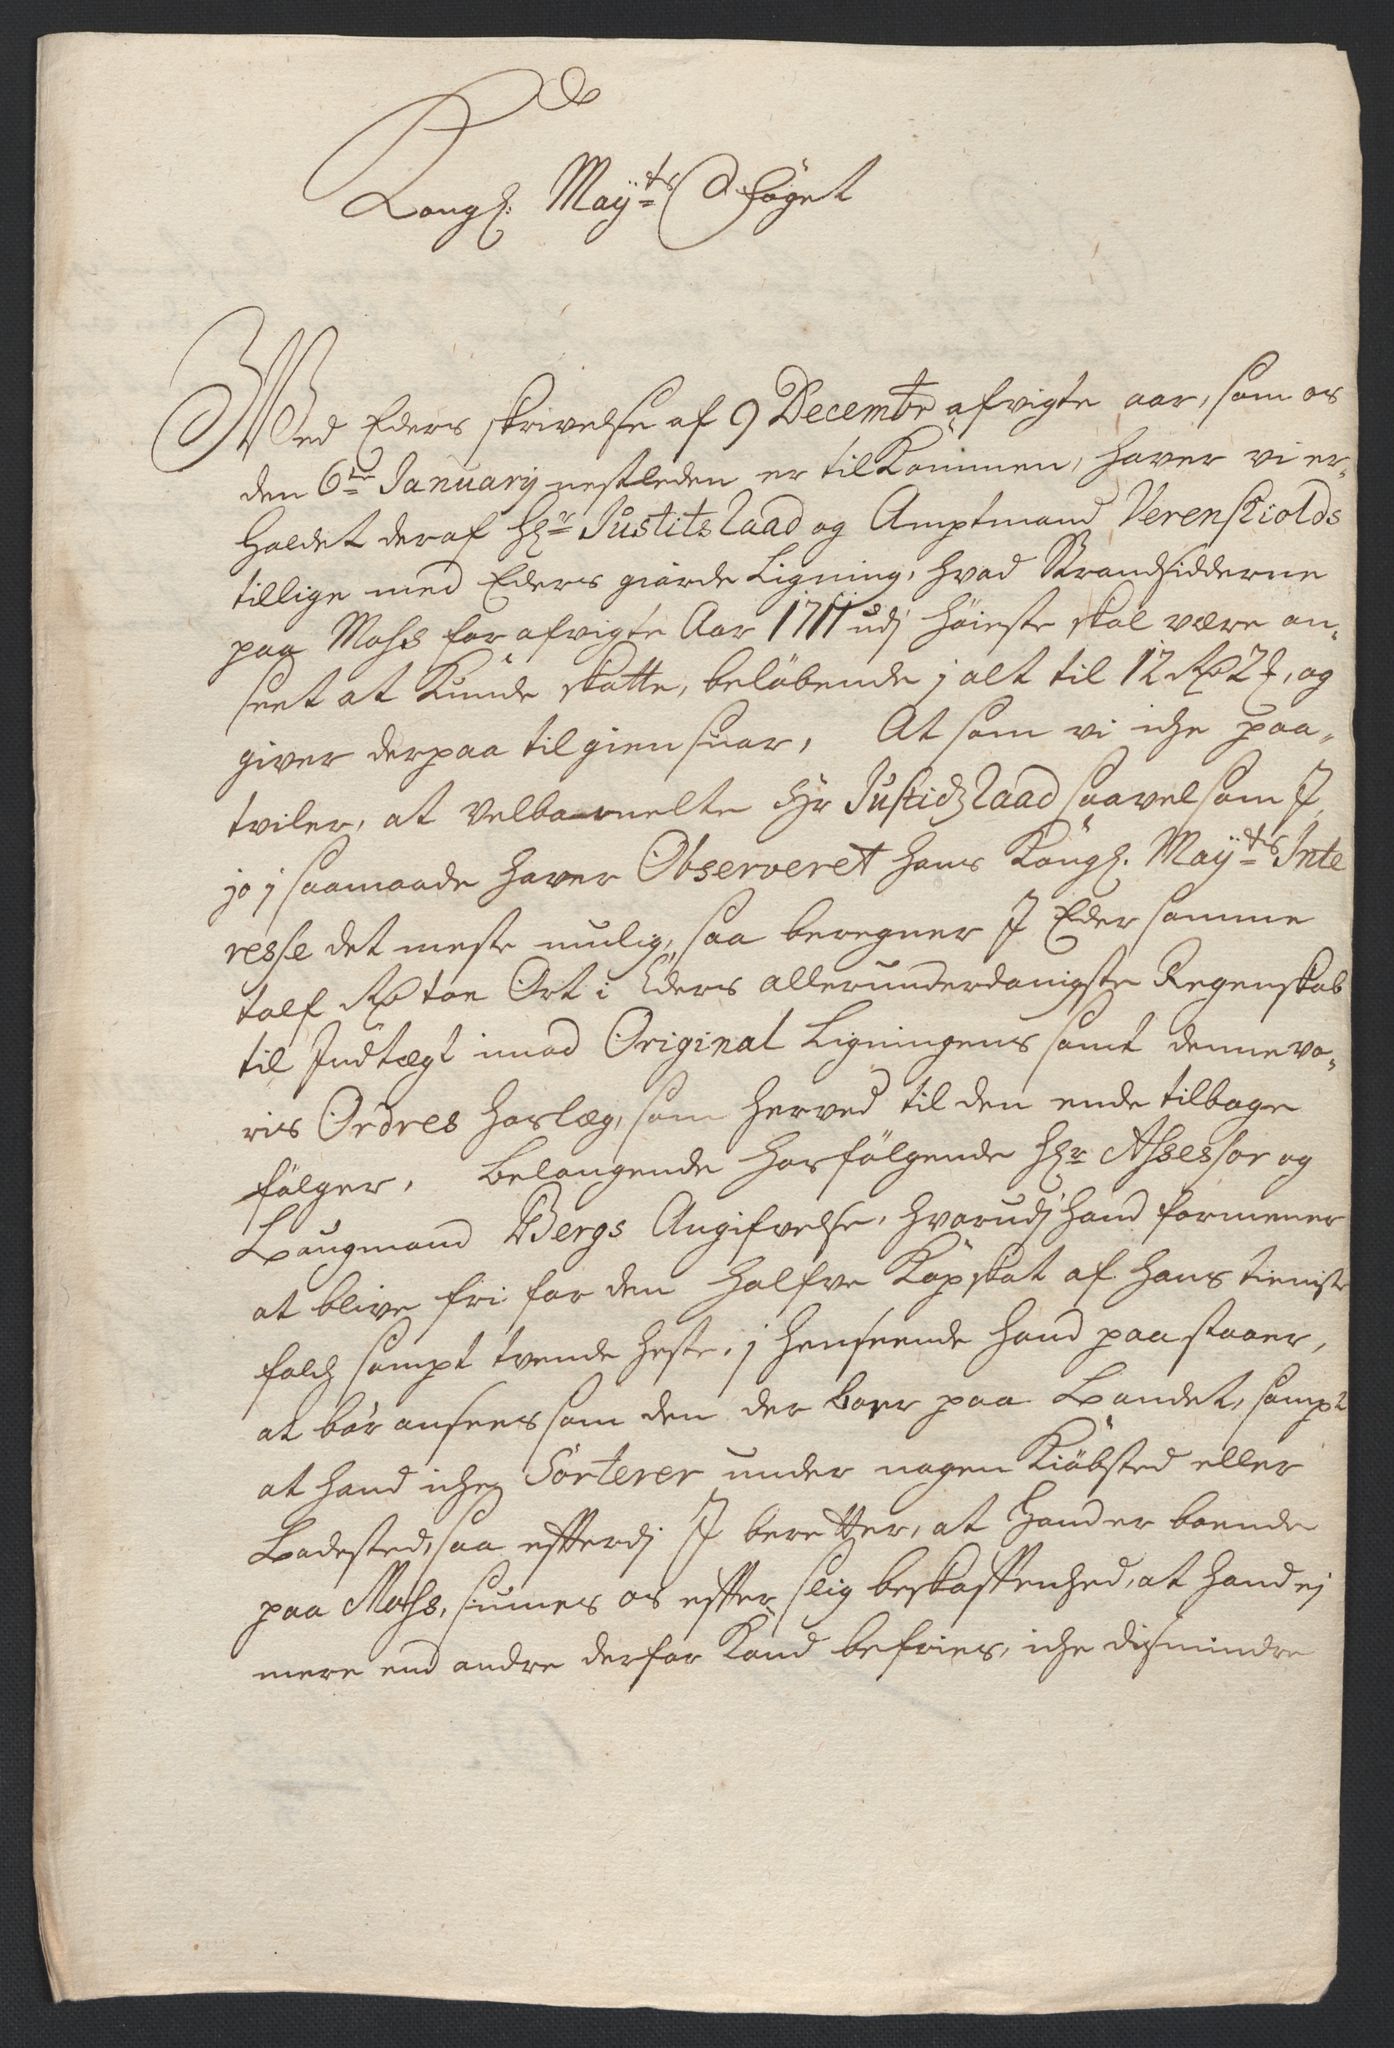 Kongl: May:ts Foget
Med Eders skrivelse af 9 Decembr afvigte aar, som os
den 6te January nestleden er tilkommen, haver vi er-
holdet deraf Hr: Justits Raad og Amptmand Verenskiolds
tillige med Eders giorde Ligning, hvad Strandsidderne
paa Moss for afvigte Aar 1711 udj höieste skal være an-
seet at kunde skatte, belöbende j alt til 12 Rd 2 ,og
giver derpaa til giensuar, At som vi iche paa-
tviler, at velbemelte Hr Justidz Raad saavelsom J,
jo j saamaade haver Observeret hans Kongl: May:ts Inte
resse det meste mulig, saa beregner J Eder samme
tolf Rd toe Ort i Eders allerunderdanigste Regenskab
til Indtægt imod Original Ligningens samt denne vo-
ris Ordres hoslæg, som herved til den ende tilbage
fölger. Belangende hosfölgende Hr: Assessor og
Laugmand Bergs Angifvelse, hvorudj hand formener
at blive fri for den halfve Kopskat af hans tieniste
folch sampt tvende heste, j henseende hand paastaaer,
at bör ansees som den der boer paa Landet, sampt
at hand iche Sorterer under nogen Kiöbsted eller
Ladested, saa efterdj J beretter, at hand er boende
paa Moss, siunes os efter slig beskaffenhed, at hand ej
mere end andre derfor kand befries, iche dismindre